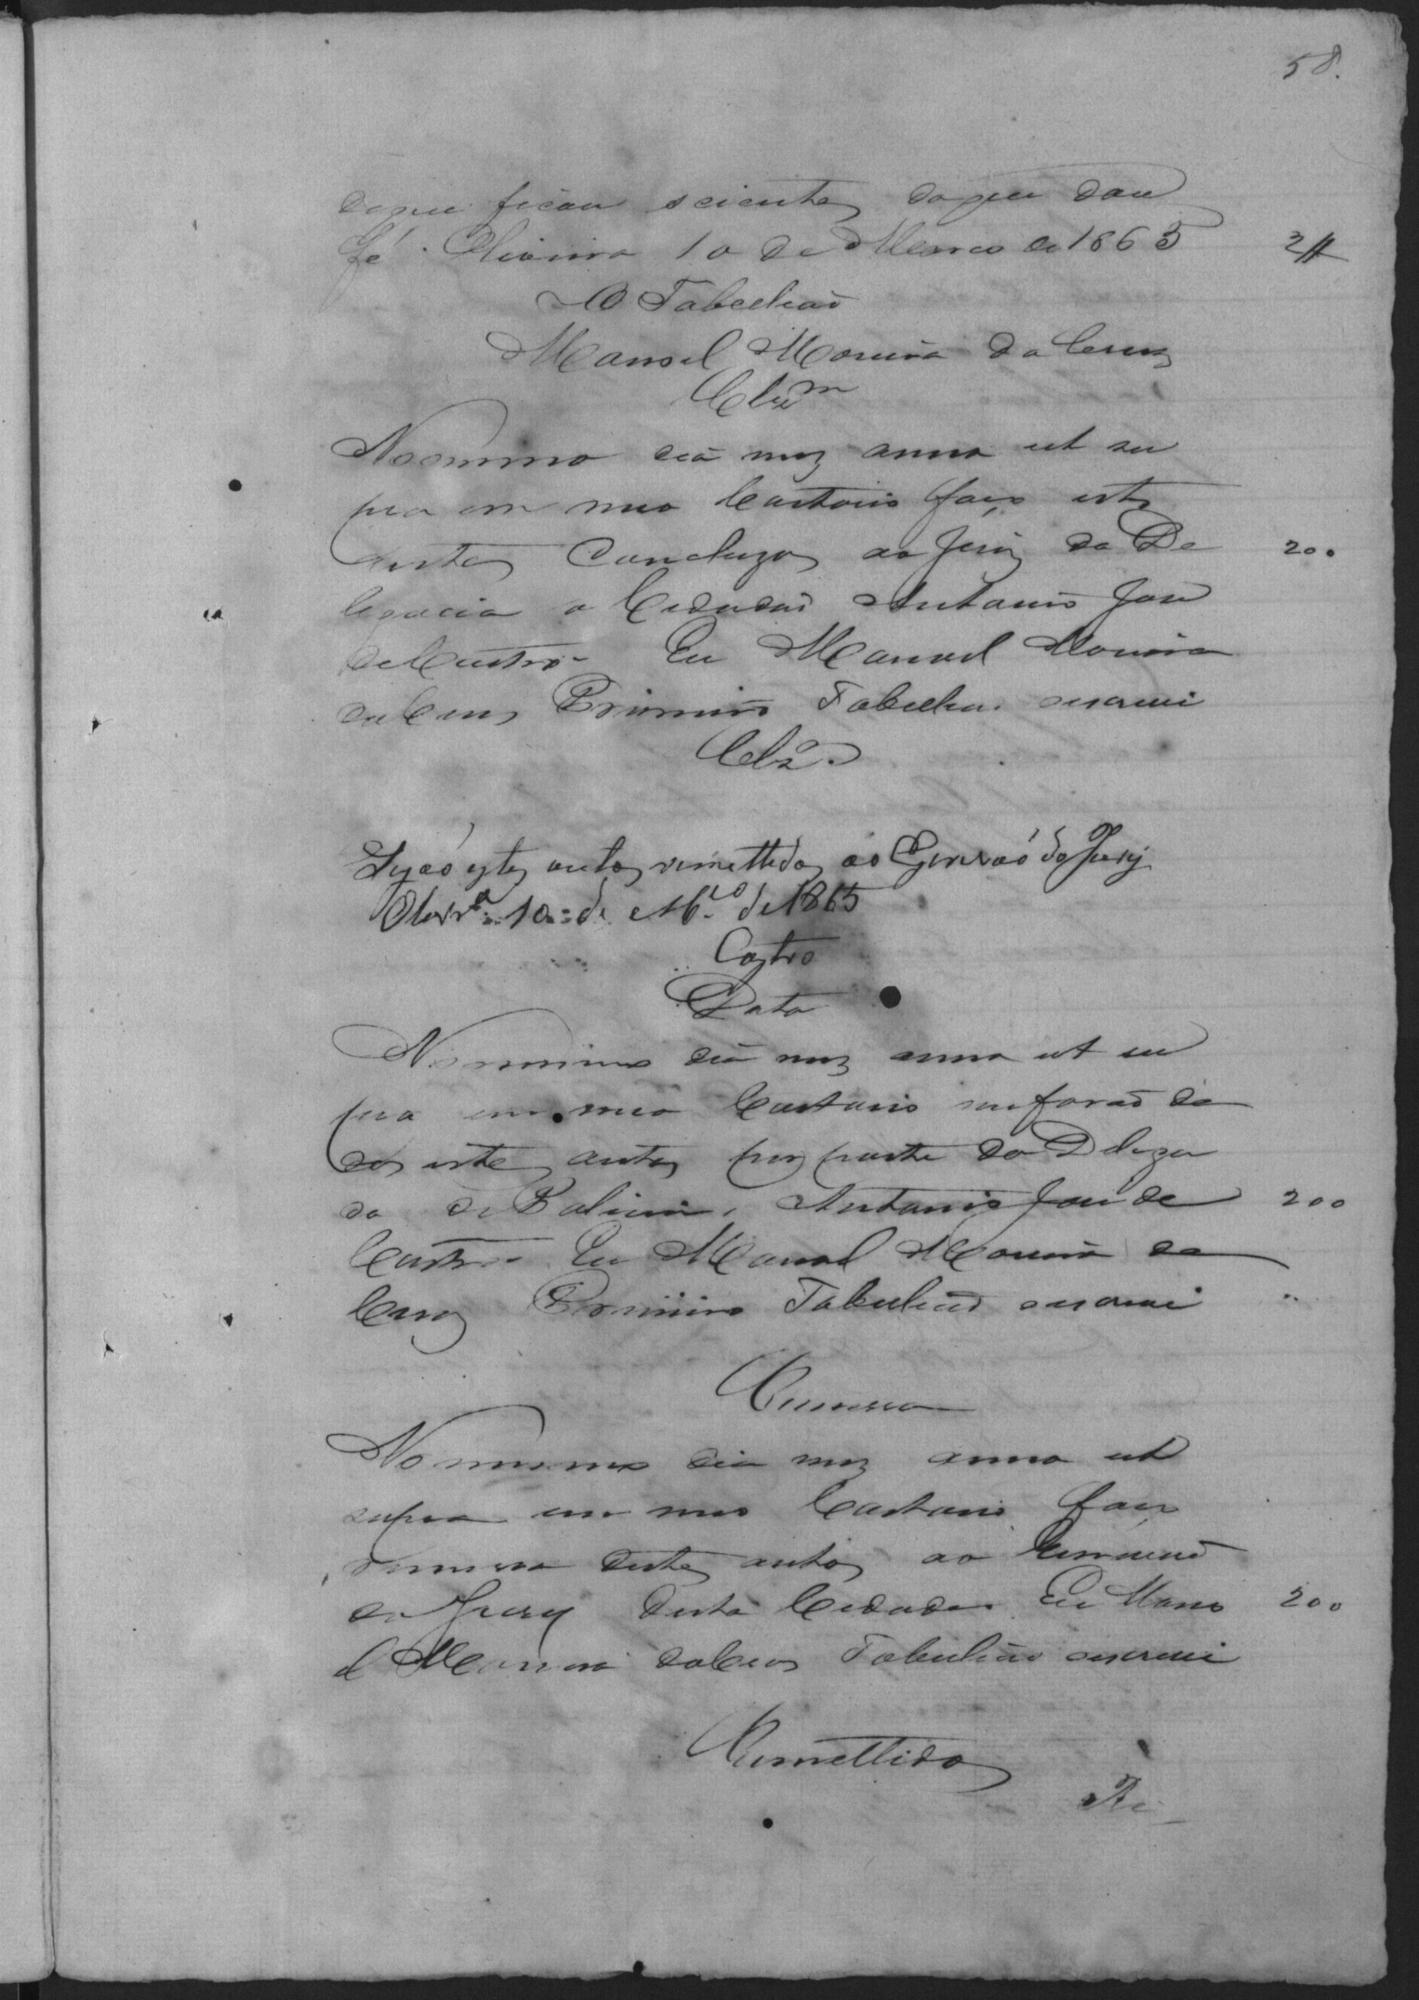 58.
doque ficou sciente doque dou
fé. Oliveira 10 de Março de 1865
2#
O Tabelliaõ
Manoel Moreira da Cruz
Clzm
No mesmo dia mez anno ut su
pra em meo Cartorio faço estes
autos Concluzos ao Juiz da De
200
legacia o Cidadaõ Antonio José
de Castro. Eu Manoel Moreira
da Cruz Primeiro Tabelliaõ escrevi
Clzo.
Sejaó estes autos remettidos ao Escrivaó do Jury
Olivra. 10 = de Mço. de 1865
Castro
Data
No mesmo dia mez anno ut su
pra em meo Cartorio me foraõ da
dos estes autos por parte do Delega
do de Policia, Antonio José de
200
Castro. Eu Manoel Moreira da
Cruz Primeiro Tabelliaõ escrevi
Remessa
No mesmo dia mez anno ut
supra em meo Cartorio faço
remessa destes autos ao Escrivaõ
do Jury desta Cidade. Eu Mano
200
el Moreira da Cruz Tabelliaõ escrevi
Remettidos